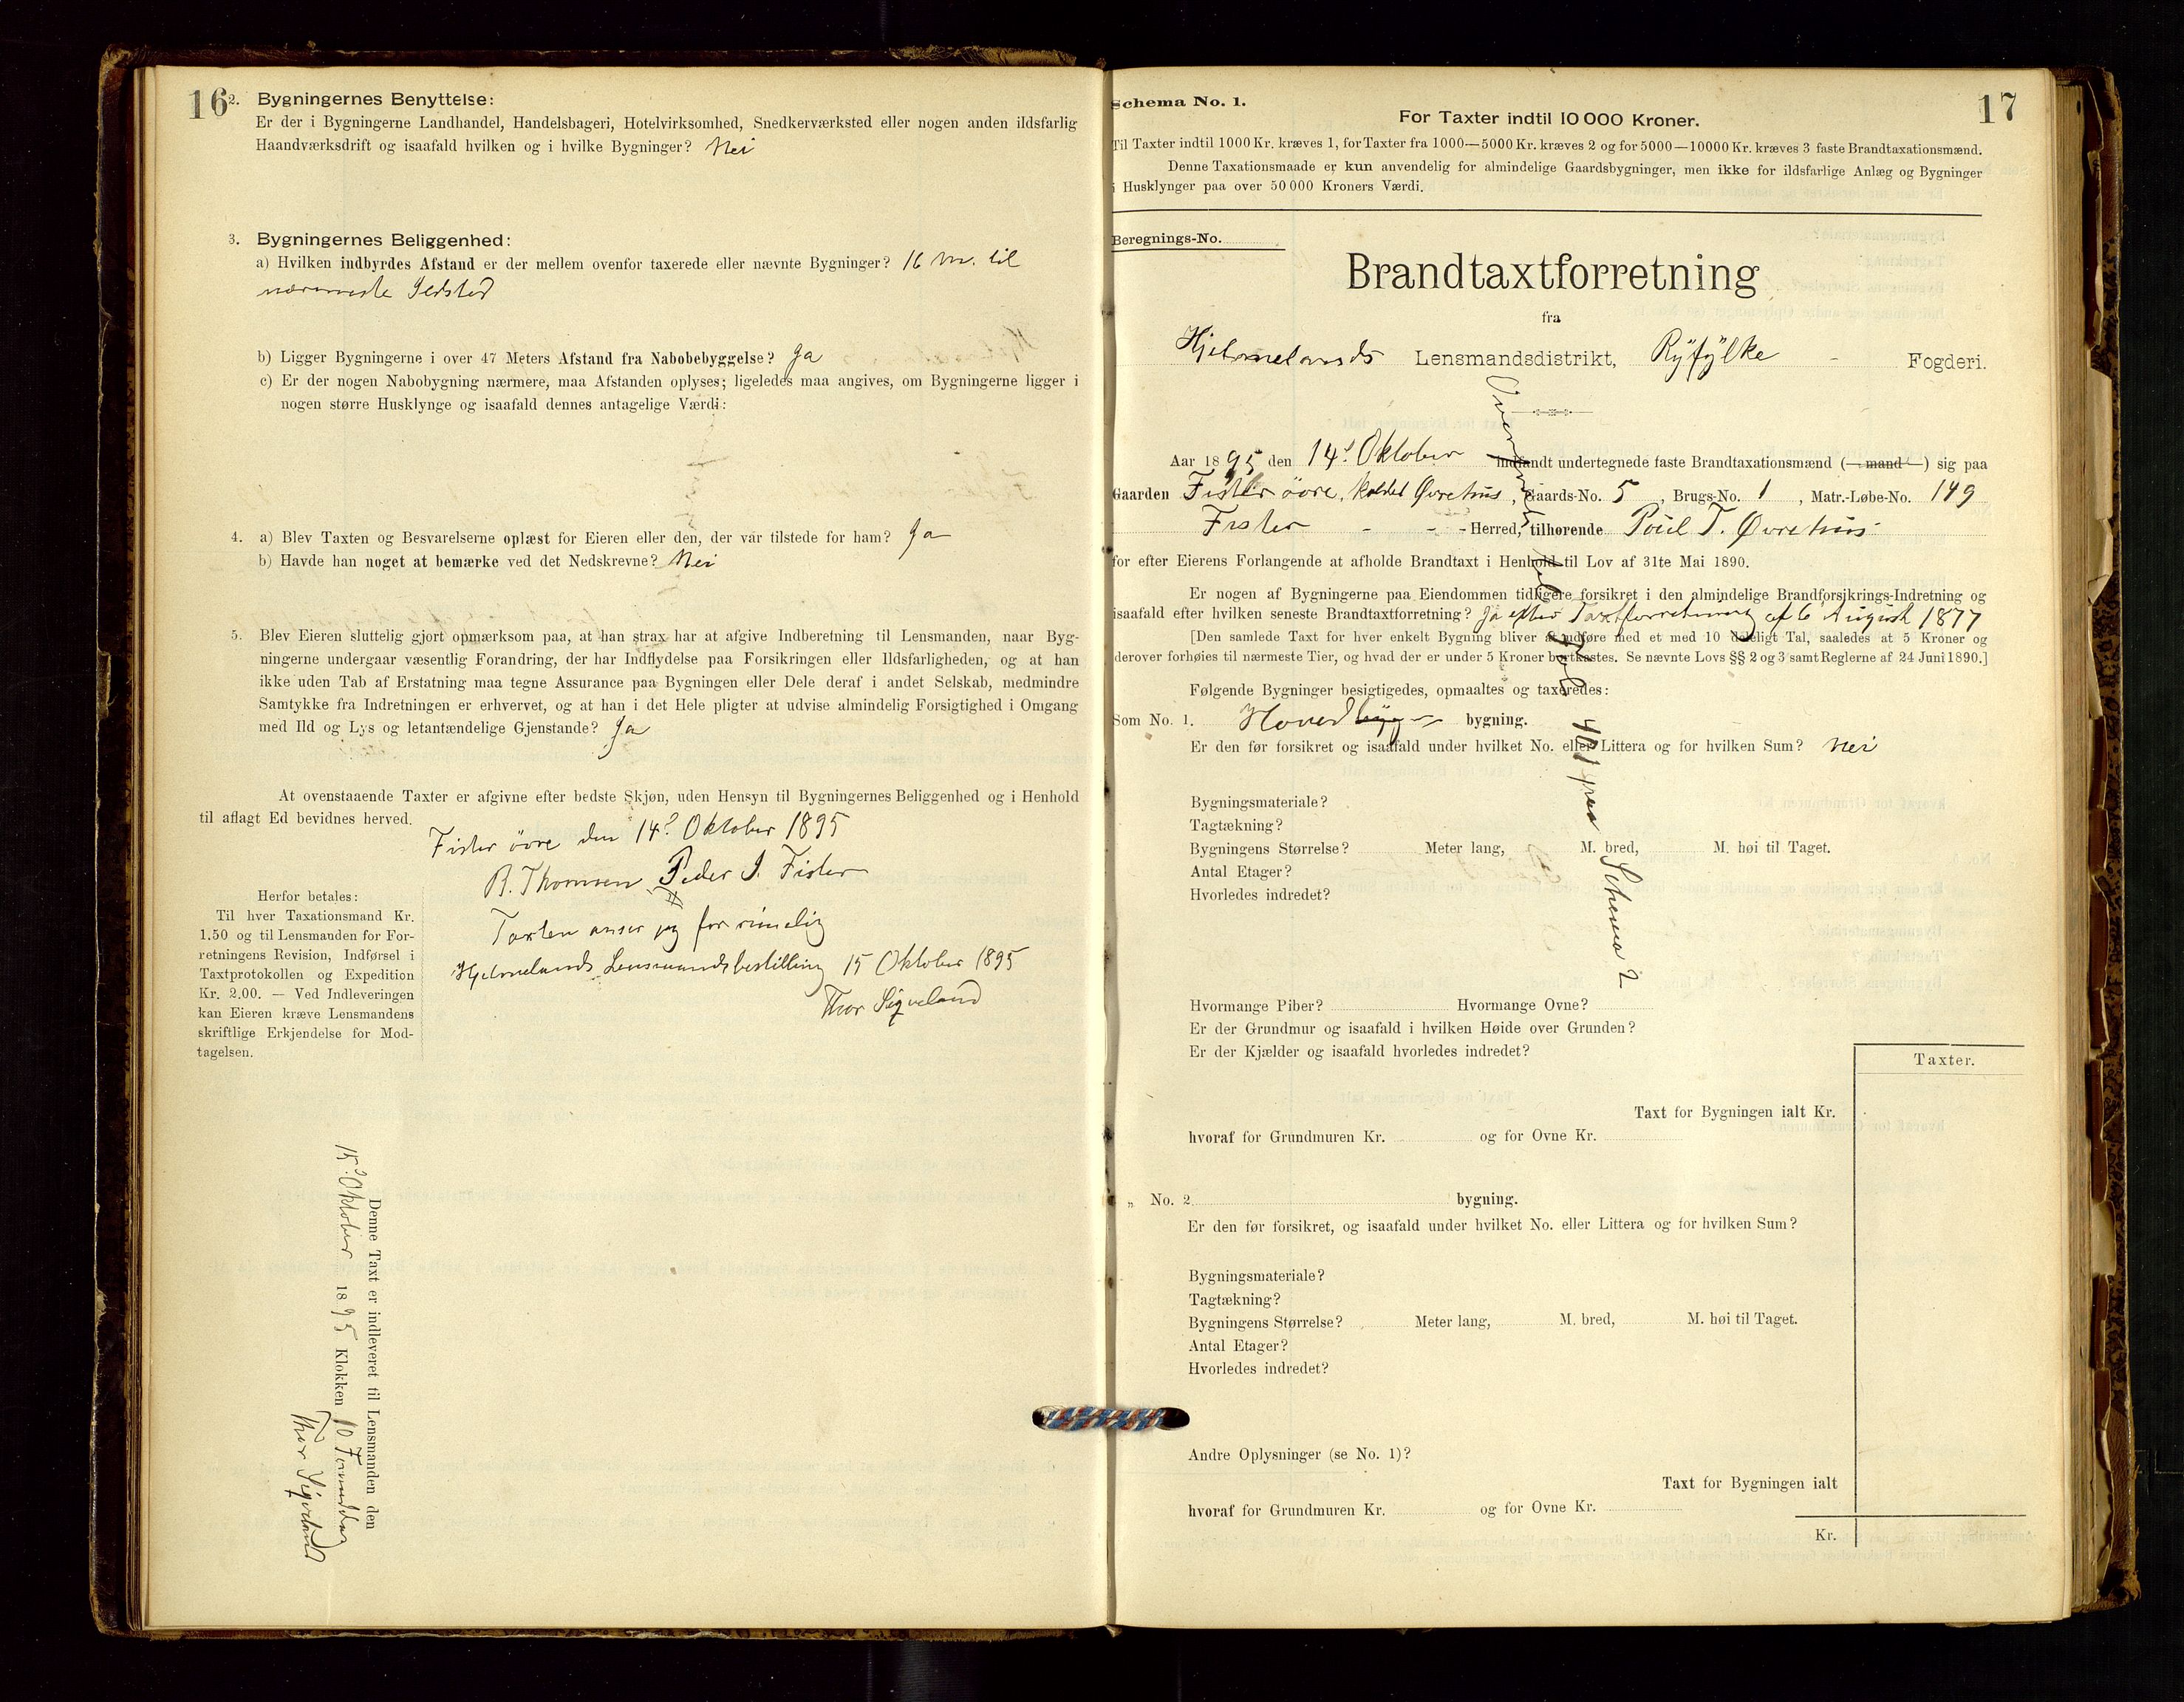 16
2. Bygningernes Benyttelse:
Er der i Bygningerne Landhandel, Handelsbageri, Hotelvirksomhed, Snedkerværksted eller nogen anden ildsfarlig
Haandværksdrift og isaafald hvilken og i hvilke Bygninger? Nei
3. Bygningernes Beliggenhed:
a) Hvilken indbyrdes Afstand er der mellem ovenfor taxerede eller nævnte Bygninger? 16 m. til
nærmeste Ildsted
b) Ligger Bygningerne i over 47 Meters Afstand fra Nabobebyggelse? Ja
c) Er der nogen Nabobygning nærmere, maa Afstanden oplyses; ligeledes maa angives, om Bygningerne ligger i
nogen større Husklynge og isaafald dennes antagelige Værdi:
4. a) Blev Taxten og Besvarelserne oplæst for Eieren eller den, der var tilstede for ham? Ja
b) Havde han noget at bemærke ved det Nedskrevne? Nei
5. Blev Eieren sluttelig gjort opmærksom paa, at han strax har at afgive Indberetning til Lensmanden, naar Byg-
ningerne undergaar væsentlig Forandring, der har Indflydelse paa Forsikringen eller Ildsfarligheden, og at han
ikke uden Tab af Erstatning maa tegne Assurance paa Bygningen eller Dele deraf i andet Selskab, medmindre
Samtykke fra Indretningen er erhvervet, og at han i det Hele pligter at udvise almindelig Forsigtighed i Omgang
med Ild og Lys og letantændelige Gjenstande? Ja
At ovenstaaende Taxter er afgivne efter bedste Skjøn, uden Hensyn til Bygningernes Beliggenhed og i Henhold
til aflagt Ed bevidnes herved.
Fister övre den 14d Oktober 1895
R. Thomsen Peder J. Fister
Taxten anser jeg for rimelig
Hjelmelands Lensmandsbestilling 15 Oktober 1895
Thor Sigveland
Herfor betales:
Til hver Taxationsmand Kr.
1.50 og til Lensmanden for For-
retningens Revision, Indførsel i
Taxtprotokollen og Expedition
Kr. 2.00. — Ved Indleveringen
kan Eieren kræve Lensmandens
skriftlige Erkjendelse for Mod-
tagelsen.
Denne Taxt er indleveret til Lensmanden den
15d Oktober 1895 Klokken 10 Formiddag
Thor Sigveland
Schema No. 1.
17
For Taxter indtil 10 000 Kroner.
Til Taxter indtil 1000 Kr. kræves 1, for Taxter fra 1000—5000 Kr. kræves 2 og for 5000—10000 Kr. kræves 3 faste Brandtaxationsmænd.
Denne Taxationsmaade er kun anvendelig for almindelige Gaardsbygninger, men ikke for ildsfarlige Anlæg og Bygninger
i Husklynger paa over 50 000 Kroners Værdi.
Beregnings-No.
Brandtaxtforretning
fra
Hjelmelands Lensmandsdistrikt, Ryfylke Fogderi.
Aar 1895 den 14d Oktober indfandt undertegnede faste Brandtaxationsmænd (—mand—) sig paa
Gaarden Fister övre, kaldet Øvrehus, Gaards-No. 5, Brugs-No. 1, Matr.-Løbe-No. 149
Fister - - - Herred, tilhørende Poul T. Øvrehus
for efter Eierens Forlangende at afholde Brandtaxt i Henhold til Lov af 31te Mai 1890.
Er nogen af Bygningerne paa Eiendommen tidligere forsikret i den almindelige Brandforsikrings-Indretning og
isaafald efter hvilken seneste Brandtaxtforretning? Ja efter Taxtforretning af 6 August 1877
[Den samlede Taxt for hver enkelt Bygning bliver at udføre med et med 10 deleligt Tal, saaledes at 5 Kroner og
derover forhøies til nærmeste Tier, og hvad der er under 5 Kroner bortkastes. Se nævnte Lovs §§ 2 og 3 samt Reglerne af 24 Juni 1890.]
Følgende Bygninger besigtigedes, opmaaltes og taxeredes:
Som No. 1. Hovedbyg bygning.
Er den før forsikret og isaafald under hvilket No. eller Littera og for hvilken Sum? Nei
Bygningsmateriale?
Tagtækning?
Bygningens Størrelse? Meter lang, M. bred, M. høi til Taget.
Antal Etager?
Hvorledes indredet?
paa Schema 2
Hvormange Piber? Hvormange Ovne?
Er der Grundmur og isaafald i hvilken Høide over Grunden?
Er der Kjælder og isaafald hvorledes indredet?
Taxter.
Taxt for Bygningen ialt Kr.
hvoraf for Grundmuren Kr. og for Ovne Kr.
„ No. 2 bygning.
Er den før forsikret, og isaafald under hvilket No. eller Littera og for hvilken Sum?
Bygningsmateriale?
Tagtækning?
Bygningens Størrelse? Meter lang, M. bred, M. høi til Taget.
Antal Etager?
Hvorledes indredet?
Andre Oplysninger (se No. 1)?
Taxt for Bygningen ialt
hvoraf for Grundmuren Kr. og for Ovne Kr.
Kr.